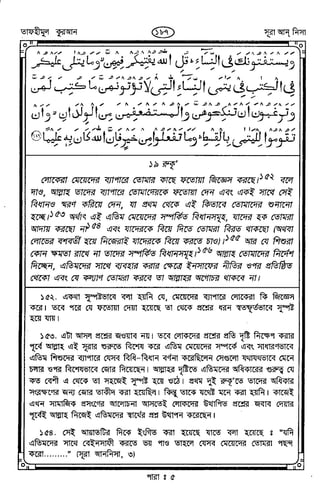 তাফহীমুল কুরআন
১৮৭
সূরা আন্ নিসা
وَيَسْتَفْتُونَكَ فِي النِّسَاءِ ۖ قُلِ اللَّهُ يُفْتِيكُمْ فِيهِنَّ ۙ وَمَا يُتْلَىٰ عَلَيْكُمْ
فِي الْكِتَابِ فِي يَتَامَى النِّسَاءِ اللَّاتِي لَا تُؤْتُونَهُنَّ مَا كُتِبَ لَهُنَّ
وَتَرْغَبُونَ أَنْ تَنْكِحُوهُنَّ وَالْمُسْتَضْعَفِينَ مِنَ الْوِلْدَانِ ۙ وَأَنْ
تَقُومُوا لِلْيَتَامَىٰ بِالْقِسْطِ ۚ وَمَا تَفْعَلُوا مِنْ خَيْرٍ فَإِنَّ اللَّهَ كَانَ بِهِ عَلِيمًا
১৯ রুকূ'
লোকেরা মেয়েদের ব্যাপারে তোমার কাছে ফতোয়া জিজ্ঞেস করছে।১৫২ বলে
দাও, আল্লাহ তাদের ব্যাপারে তোমাদেরকে ফতোয়া দেন এবং একই সাথে সেই
বিধানও স্মরণ করিয়ে দেন, যা প্রথম থেকে এই কিতাবে তোমাদের শুনানো
হচ্ছে।১৫৩ অর্থাৎ এই এতিম মেয়েদের সম্পর্কিত বিধানসমূহ, যাদের হক তোমরা
আদায় করছো না১৫৪ এবং যাদেরকে বিয়ে দিতে তোমরা বিরত থাকছো (অথবা
লোভের বশবর্তী হয়ে নিজেরাই যাদেরকে বিয়ে করতে চাও)।১৫৫ আর যে শিশুরা
কোন ক্ষমতা রাখে না তাদের সম্পর্কিত বিধানসমূহ।১৫৬ আল্লাহ তোমাদের নির্দেশ
দিচ্ছেন, এতিমদের সাথে ব্যবহার করার ক্ষেত্রে ইনসাফের নীতির ওপর প্রতিষ্ঠিত
থেকো এবং যে কল্যাণ তোমরা করবে তা আল্লাহর অগোচর থাকবে না।
১৫২. একথা সুস্পষ্টভাবে বলা হয়নি যে, মেয়েদের ব্যাপারে লোকেরা কি জিজ্ঞেস
করে। তবে পরে যে ফতোয়া দেয়া হয়েছে তা থেকে প্রশ্নের ধরন স্বতস্ফূর্তভাবে সুস্পষ্ট
হয়ে যায়।
১৫৩. এটা আসল প্রশ্নের জওয়াব নয়। তবে লোকদের প্রশ্নের প্রতি দৃষ্টি নিক্ষেপ করার
পূর্বে আল্লাহ এই সূরার শুরুতে বিশেষ করে এতিম মেয়েদের সম্পর্কে এবং সাধারণভাবে
এতিম শিশুদের ব্যাপারে যেসব বিধি-বিধান বর্ণনা করেছিলেন সেগুলো যথাযথভাবে মেনে
চলার ওপর বিশেষভাবে জোর দিয়েছেন। আল্লাহর দৃষ্টিতে এতিমদের অধিকারের গুরুত্ব যে
কত বেশী এ থেকে তা সহজেই সুস্পষ্ট হয়ে ওঠে। প্রথম দুই রুকূ'তে তাদের অধিকার
সংরক্ষণের জন্য জোর তাগীদ করা হয়েছিল। কিন্তু তাকে যথেষ্ট মনে করা হয়নি। কাজেই
এখন সামাজিক প্রসংগের আলোচনা আসতেই লোকদের উত্থাপিত প্রশ্নের জবাব দেয়ার
পূর্বেই আল্লাহ নিজেই এতিমদের স্বার্থের প্রশ্ন উত্থাপন করেছেন।
১৫৪. সেই আয়াতটির দিকে ইংগিত করা হয়েছে যাতে বলা হয়েছে : "যদি
এতিমদের সাথে বেইনসাফী করতে ভয় পাও তাহলে যেসব মেয়েদের তোমরা পছন্দ
করো........." (সূরা আননিসা, ৩)
পারা : ৫